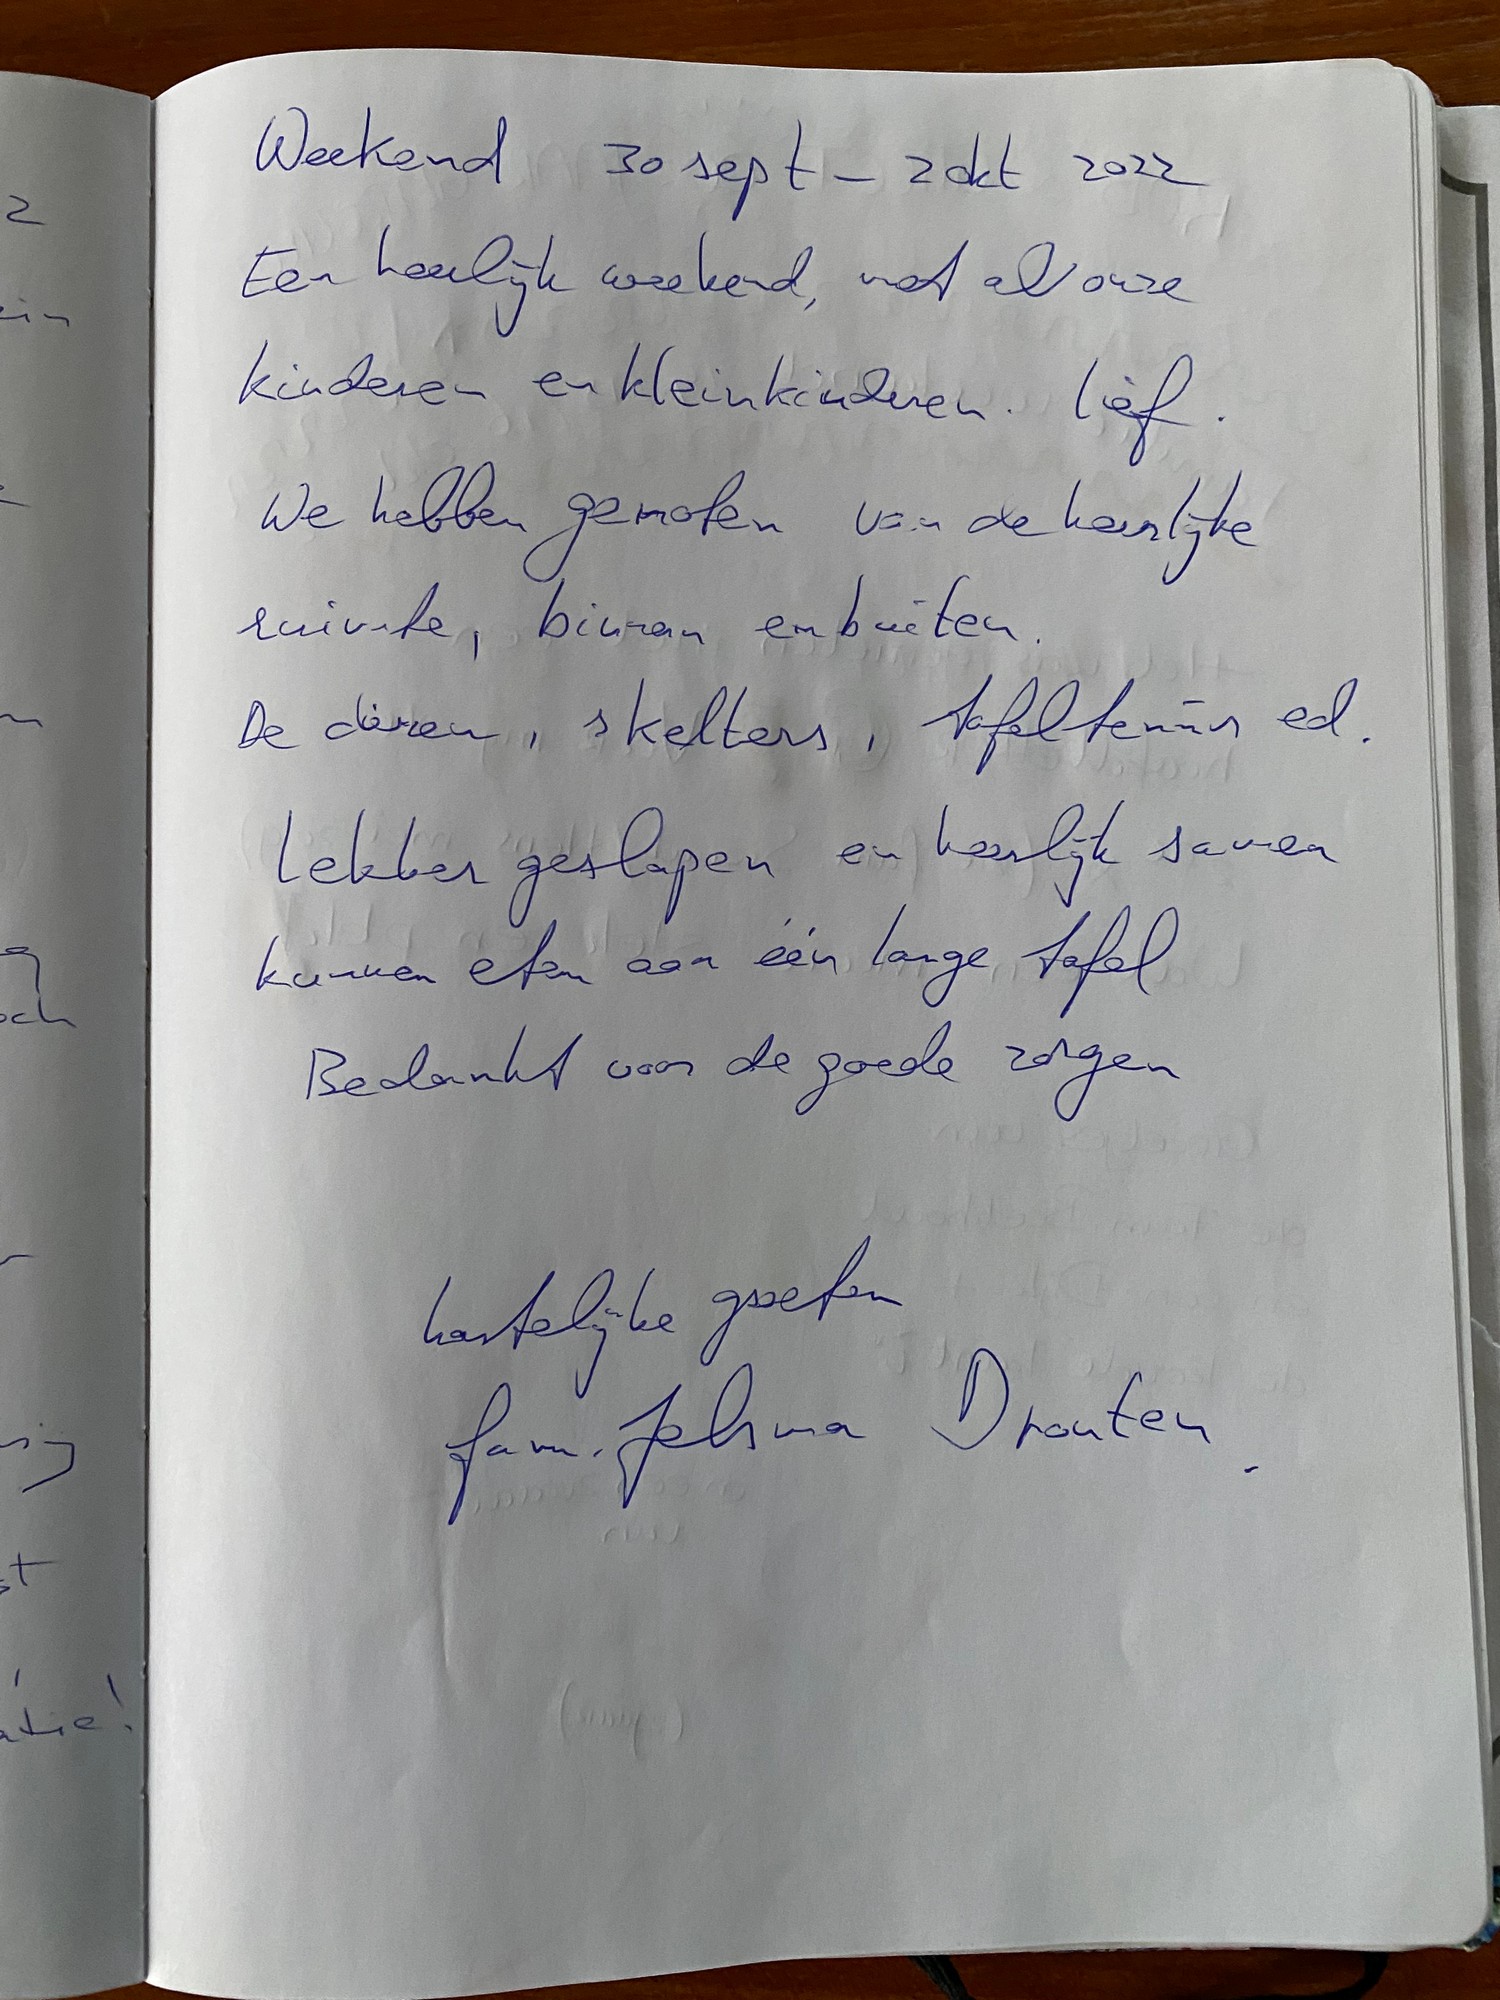 Weekend 30 sept - 2 okt 2022
Een heerlijk weekend, met al onze
kinderen en kleinkinderen. lief.
We hebben genoten van de heerlijke
ruimte, binnen en buiten.
De dieren, skelters, tafeltennis ed.
Lekker geslapen en heerlijk samen
kunnen eten aan één lange tafel
Bedankt voor de goede zorgen
hartelijke groeten
fam. Jelsma Dronten.